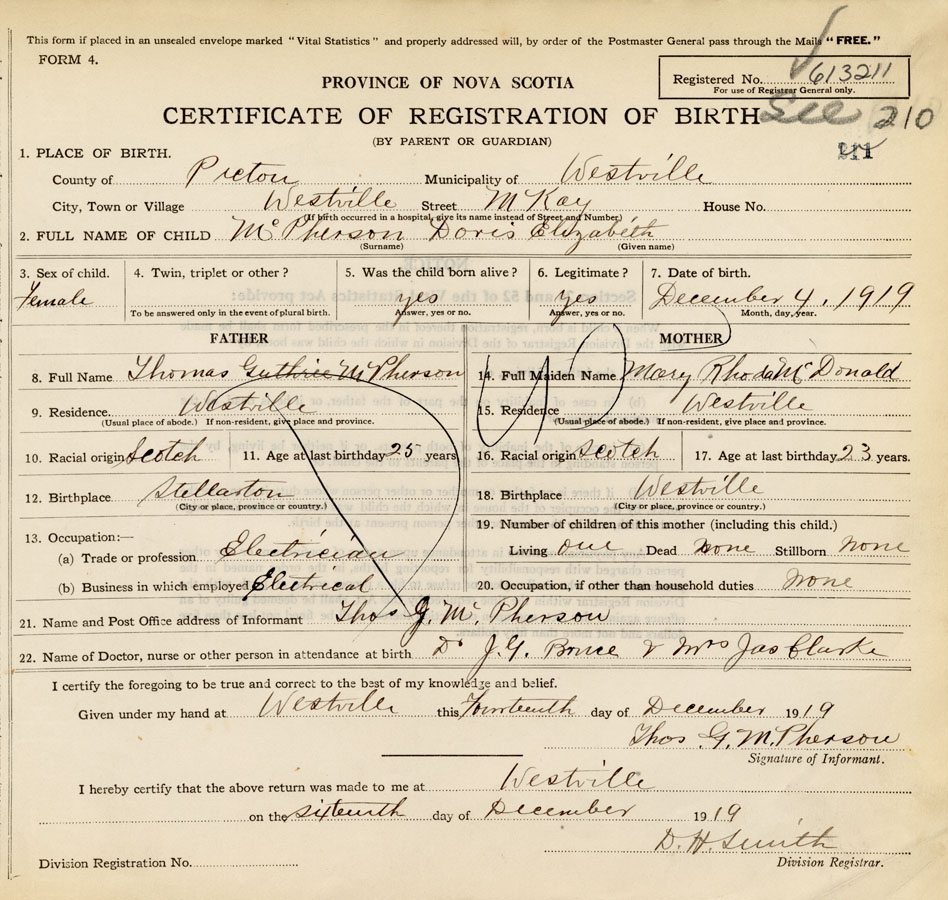 This form if placed in an unsealed envelope marked "Vital Statistics" and properly addressed will, by order of the Postmaster General pass through the Mails "FREE."
FORM 4.
Registered No. 613211
For use of Registrar General only.
PROVINCE OF NOVA SCOTIA
CERTIFICATE OF REGISTRATION OF BIRTH See 210
(BY PARENT OR GUARDIAN) 211
1. PLACE OF BIRTH.
County of Picton Municipality of Westville
City, Town or Village Westville Street McKay House No.
(If birth occurred in a hospital, give its name instead of Street and Number)
2. FULL NAME OF CHILD McPherson Doris Elizabeth
(Surname) (Given name)
3. Sex of child. 4. Twin, triplet or other? 5. Was the child born alive? 6. Legitimate? 7. Date of birth.
Female yes yes December 4, 1919
To be answered only in the event of plural birth. Answer, yes or no. Answer, yes or no. Month, day, year.
FATHER MOTHER
8. Full Name Thomas Guthrie McPherson 14. Full Maiden Name Mary Rhoda McDonald
9. Residence. Westville 15. Residence Westville
(Usual place of abode.) If non-resident, give place and province. (Usual place of abode.) If non-resident, give place and province.
10. Racial origin Scotch 11. Age at last birthday 25 years 16. Racial origin Scotch 17. Age at last birthday 23 years.
12. Birthplace Stellarton 18. Birthplace Westville
(City or place, province or country.) (City or place, province or country.)
13. Occupation:— 19. Number of children of this mother (including this child.)
(a) Trade or profession Electrician Living one Dead none Stillborn none
(b) Business in which employed Electrical 20. Occupation, if other than household duties none
21. Name and Post Office address of Informant Thos G. McPherson
22. Name of Doctor, nurse or other person in attendance at birth Dr J.G. Bruce & Mrs Jas Clarke
I certify the foregoing to be true and correct to the best of my knowledge and belief.
Given under my hand at Westville this fourteenth day of December 1919
Thos. G. McPherson
Signature of Informant.
I hereby certify that the above return was made to me at Westville
on the sixteenth day of December 1919
D. H. Smith
Division Registration No. Division Registrar.